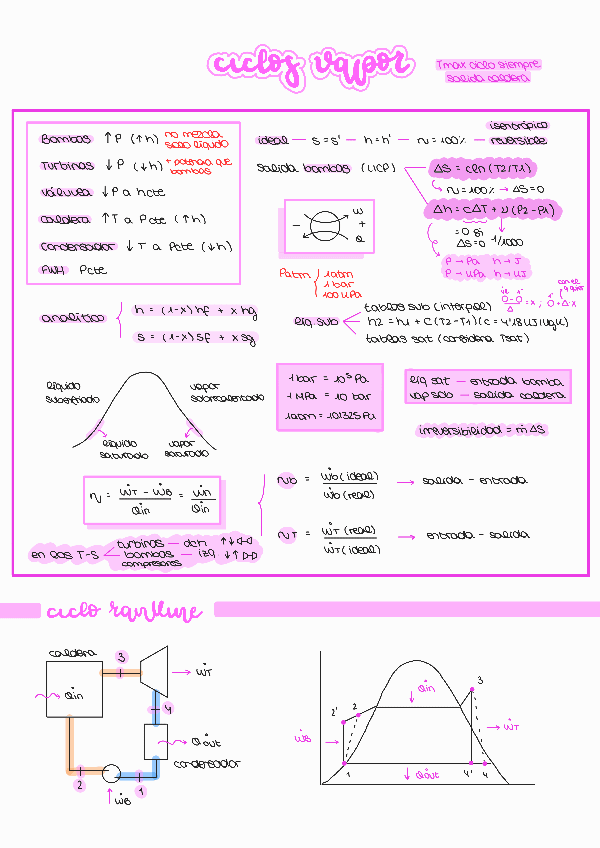 ciclos vapor
Tmax ciclo siempre
salida caldera
Bombas ↑P (↑h) no mezcla
solo líquido
Turbinas ↓P (↓h) + potencia que
bombas
válvula ↓P a hcte
caldera ↑T a Pcte (↑h)
condensador ↓T a Pcte (↓h)
FWH Pcte
isentrópico
ideal — s=s' — h=h' — η=100% — reversible
salida bombas (LICP)
ΔS = cln(T2/T1)
η=100% → ΔS=0
Δh = cΔT + v(P2-P1)
=0 si
ΔS=0
1/1000
P→Pa h→J
P→kPa h→kJ
W
- +
Q
Patm
1atm
1 bar
100 kPa
analítico
h = (1-x) hf + x hg
s = (1-x) sf + x sg
liq. sub
tablas sub (interpol)
h2 = h1 + C(T2-T1) (c = 4'18 kJ/kgK)
tablas sat (considera Tsat)
líquido
subenfriado
vapor
sobrecalentado
líquido
saturado
vapor
saturado
1 bar = 10⁵ Pa
1 MPa = 10 bar
1atm = 101325 Pa
liq sat — entrada bomba
vap sob — salida caldera
irreversibilidad = ṁ ΔS
η = ẆT - ẆB / Q̇in = Ẇn / Q̇in
ηb = Ẇb (ideal) / Ẇb (real) → salida - entrada
ηT = ẆT (real) / ẆT (ideal) → entrada - salida
en gas T-S
turbinas — dch ↑↓
bombas — izq ↓↑
compresores
ciclo rankine
caldera
3
Q̇in
ẆT
4
Q̇out
condensador
2
1
ẆB
3
Q̇in
2'
2
ẆB
ẆT
1
Q̇out
4'
4